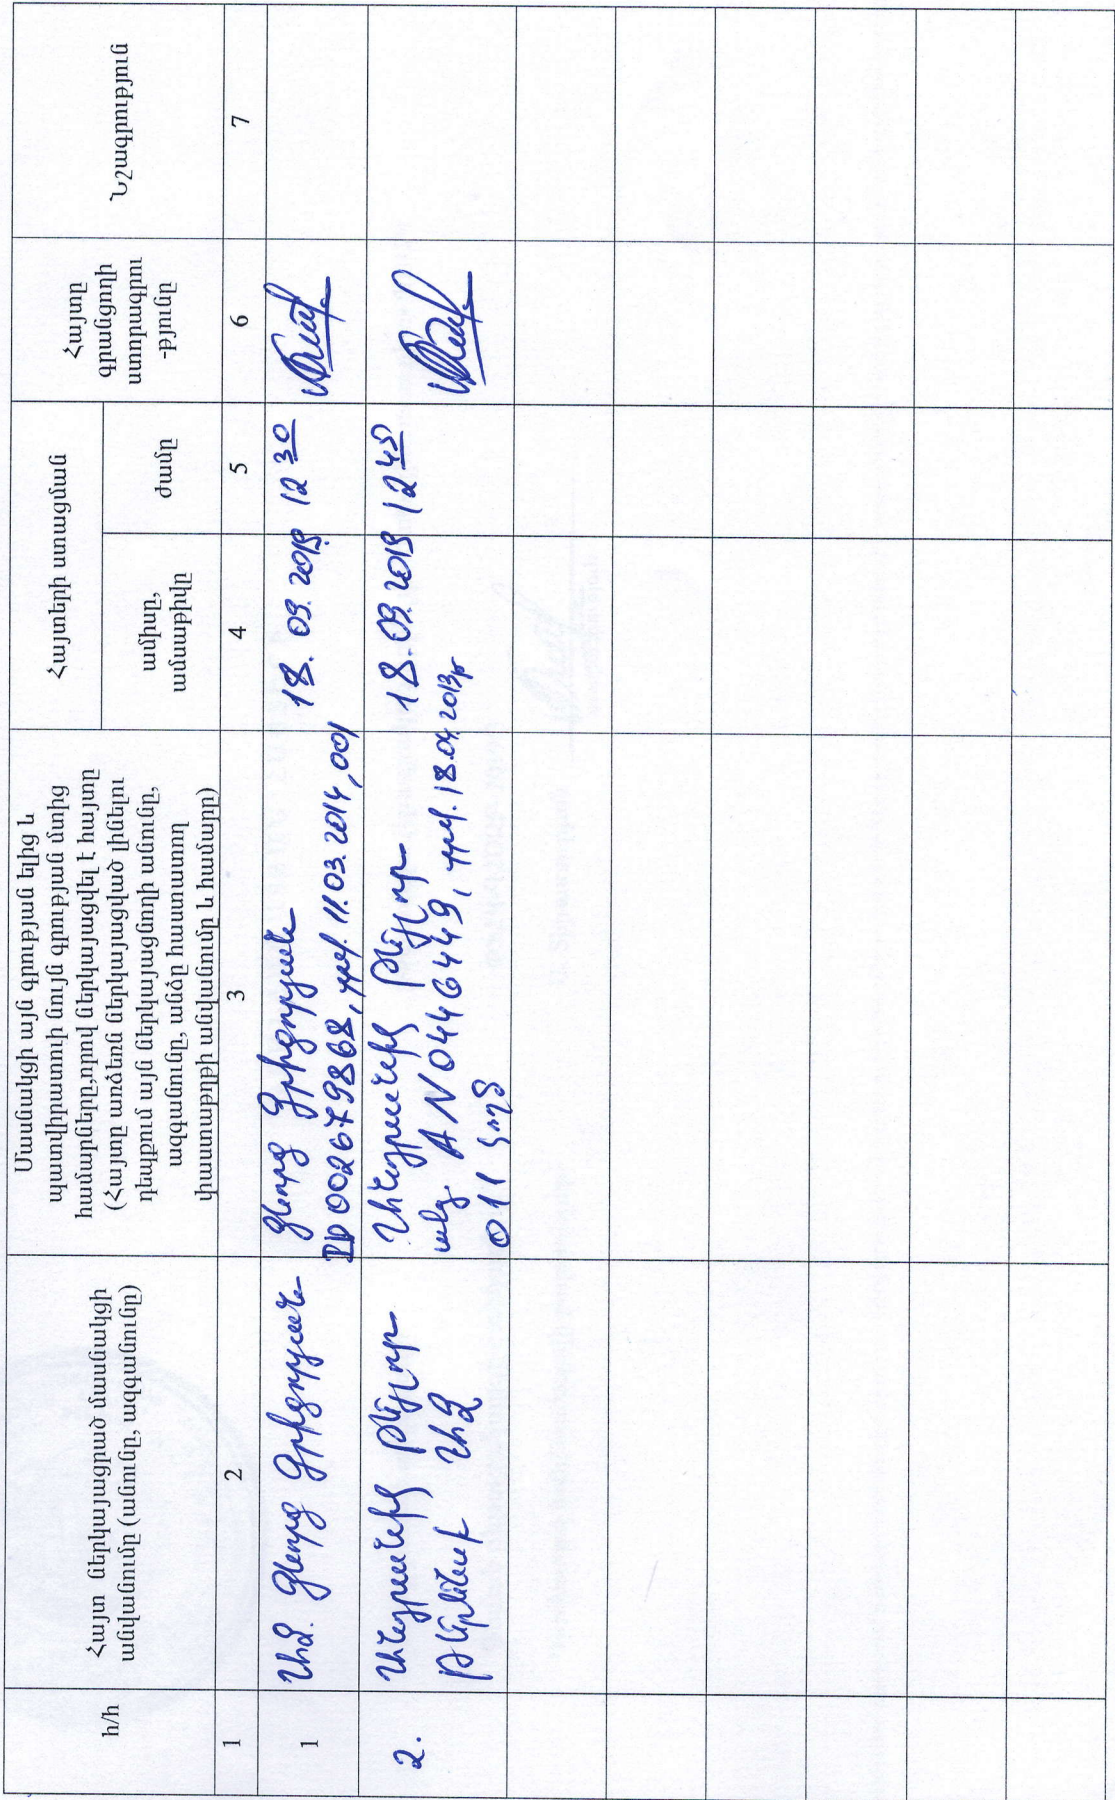 հ/հ
Հայտ ներկայացրած մասնակցի
անվանումը (անունը, ազգանունը)
Մասնակցի այն գրության ելից և
պատվիրատուի նույն գրության մտից
համարները,որով ներկայացվել է հայտը
(Հայտը առձեռն ներկայացված լինելու
դեպքում այն ներկայացնողի անունը,
ազգանունը, անձը հաստատող
փաստաթղթի անվանումը և համարը)
Հայտերի ստացման
ամիսը,
ամսաթիվը
ժամը
Հայտը
գրանցողի
ստորագրու
-թյունը
Նշագրություն
1
2
3
4
5
6
7
1
ԱՁ. Գևորգ Գրիգորյան
Գևորգ Գրիգորյան
ID 002679868, տրվ. 11.03.2014, 001
18. 09. 2019
12 30
2.
Անդրանիկ Թեյլոր
ԱՁ
Անդրանիկ Թեյլոր
անձ. AN0446449, տրվ. 18.04.2013թ
011 կողմ
18.09.2019
12 45